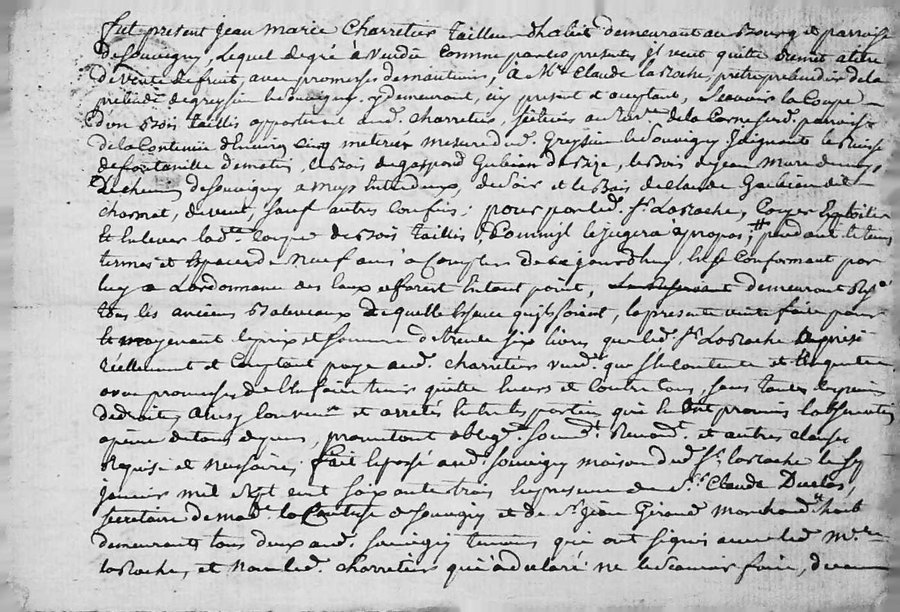 fut present Jean Marie Charretier Tailleur d'habit demeurant au Bourg et paroisse
de Souvigny, Lequel de gré à vendu comme par les presentes il vent quitte Remet a titre
de vente de fruit, avec promesses de maintenir, à Mre Claude la Roche, pretre prebendier de la
prebende de greysieu le Souvigny y demeurant, icy present et aceptant, Scavoir la Coupe
d'un Bois taillis appartenant aud. Charretier, Scitué au de la paroisse
de la Contenue d'environ Cinq metriers mesure dud. Greysieu le Souvigny Joignant le
de de matin, le Bois de gaspard Gubian de Bize, le Bois de Jean Mure de
Le chemin de Souvigny a Meys Entredeux, de soir et le Bois de Claude Gubian dit
charmat, de vent, Sauf autres Confins; pour par led. Sr LaRoche, Couper Exploiter
Et Enlever lad.te Coupe de Bois Taillis, Comm'il le jugera apropos; # pendant le tems
termes et Espace de Neuf ans a Compter de ce jourd'huy, En se Conformant par
luy a Lordonnance des Eaux et forest En tout point, demeurant
tous les anciens Bateveaux de quelle Essence qu'ils soient, la presente vente faite pour
Et moyenant le prix et somme de trente six livres, que led. Sr LaRoche a
réellement et Comptant payé aud. Charretier vend.r qui s'en Contente et En quitte
avec promesses de l'En faire tenir quitte Envers et Contre tous, sans
de droit, Ainsy Convenu et arretés Entre les parties qui En ont promis lobservation
apeine de tous depens, promettant oblig.t Soum.t Renonc.t et autres clauses
Requise et necessaires. fait et passé aud. Souvigny maison dud. Sr LaRoche le six
janvier mil Sept cent soixante trois En presence de Sr Claude
secretaire de mad.e la Comtesse de Souvigny et de Sr Jean Giraud Marchand
demeurants tous deux aud. Souvigny temoins qui ont signé avec led. Mre
LaRoche, et Non led. Charretier qui a declaré ne le Scavoir faire, de ce